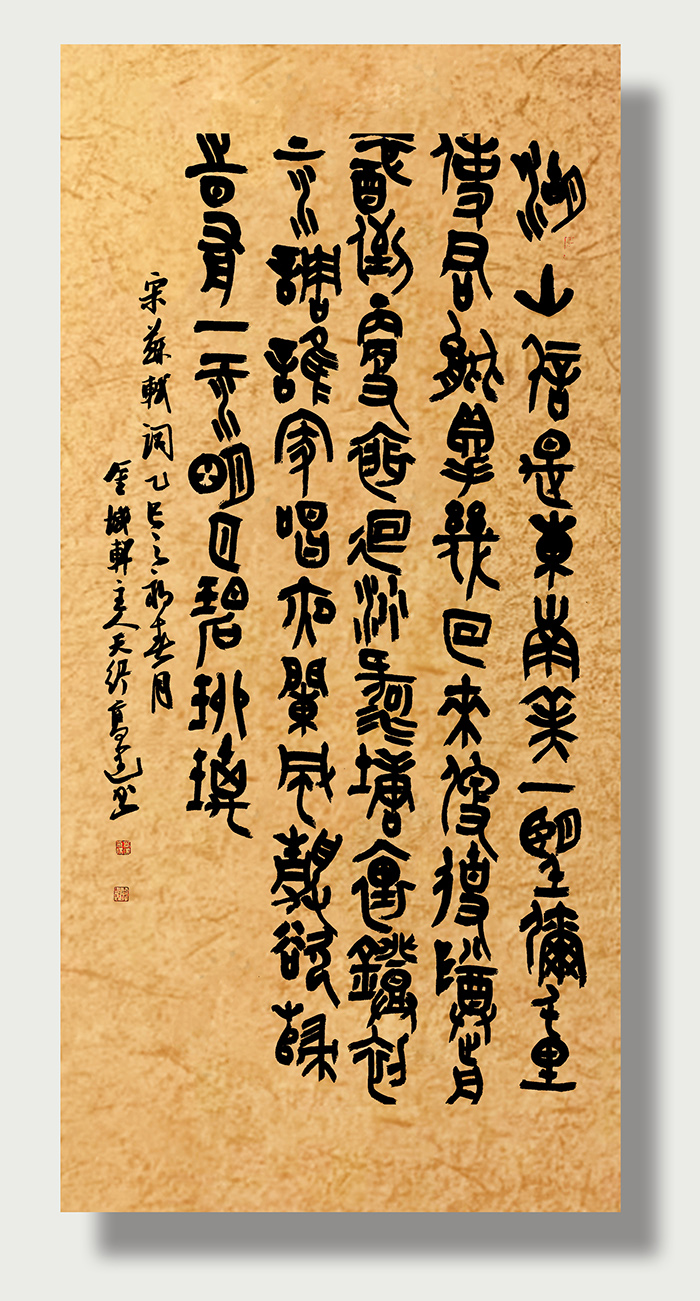 湖山信是東南美一望彌千里
使君能得幾回來便使樽前
醉倒更徘徊沙河塘裏鐙初
上水調誰家唱夜闌風靜欲歸
時有一江明月碧琉璃
宋蘇軾詞乙巳之初春月
金城軒主人天高遠書